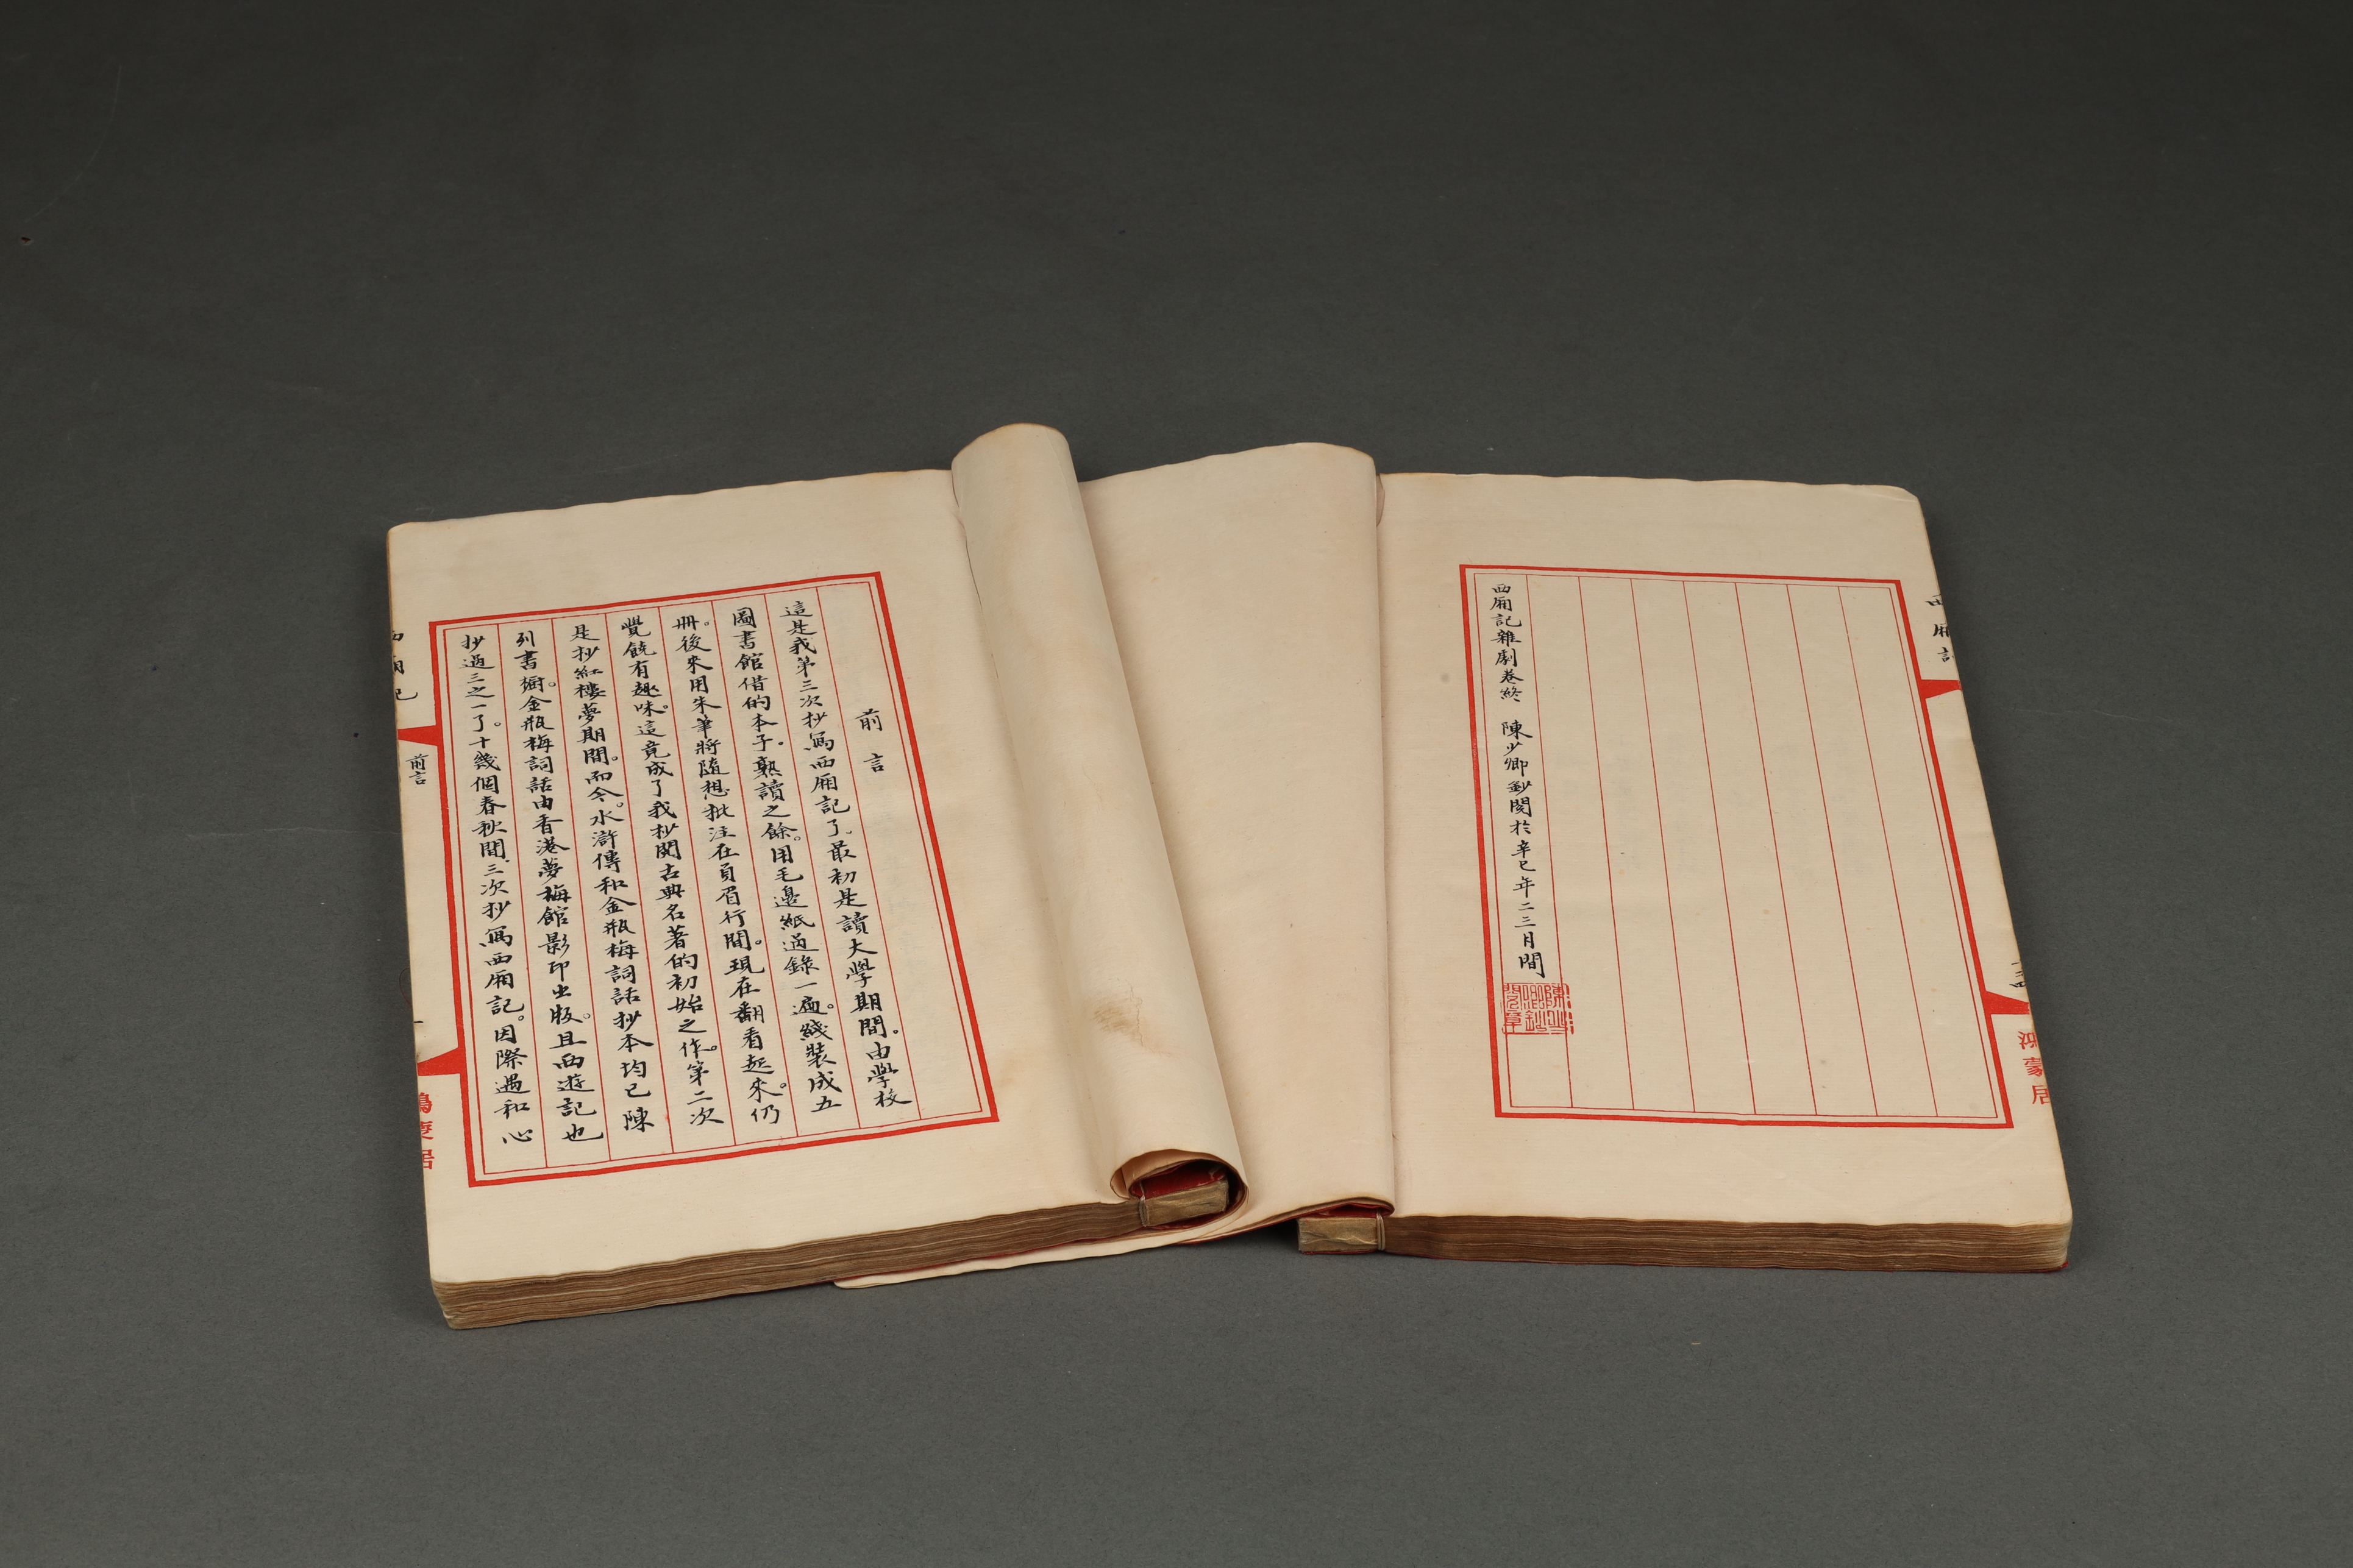 前言
這是我第三次抄寫西厢記了。最初是讀大學期間。由學校
圖書館借的本子。熟讀之餘。用毛邊紙過錄一遍。綫裝成五
冊。後來用朱筆將隨想批注在頁眉行間。現在翻看起來。仍
覺饒有趣味。這竟成了我抄閱古典名著的初始之作。第二次
是抄紅樓夢期間。而今。水滸傳和金瓶梅詞話抄本均已陳
列書櫥。金瓶梅詞話由香港夢梅館影印出版。且西遊記也
抄過三之一了。十幾個春秋間。三次抄寫西厢記。因際遇和心
前言
西厢記雜劇卷終 陳少卿鈔閱於辛巳年二三月間
陳少卿鈔閱章
西厢記
濛居